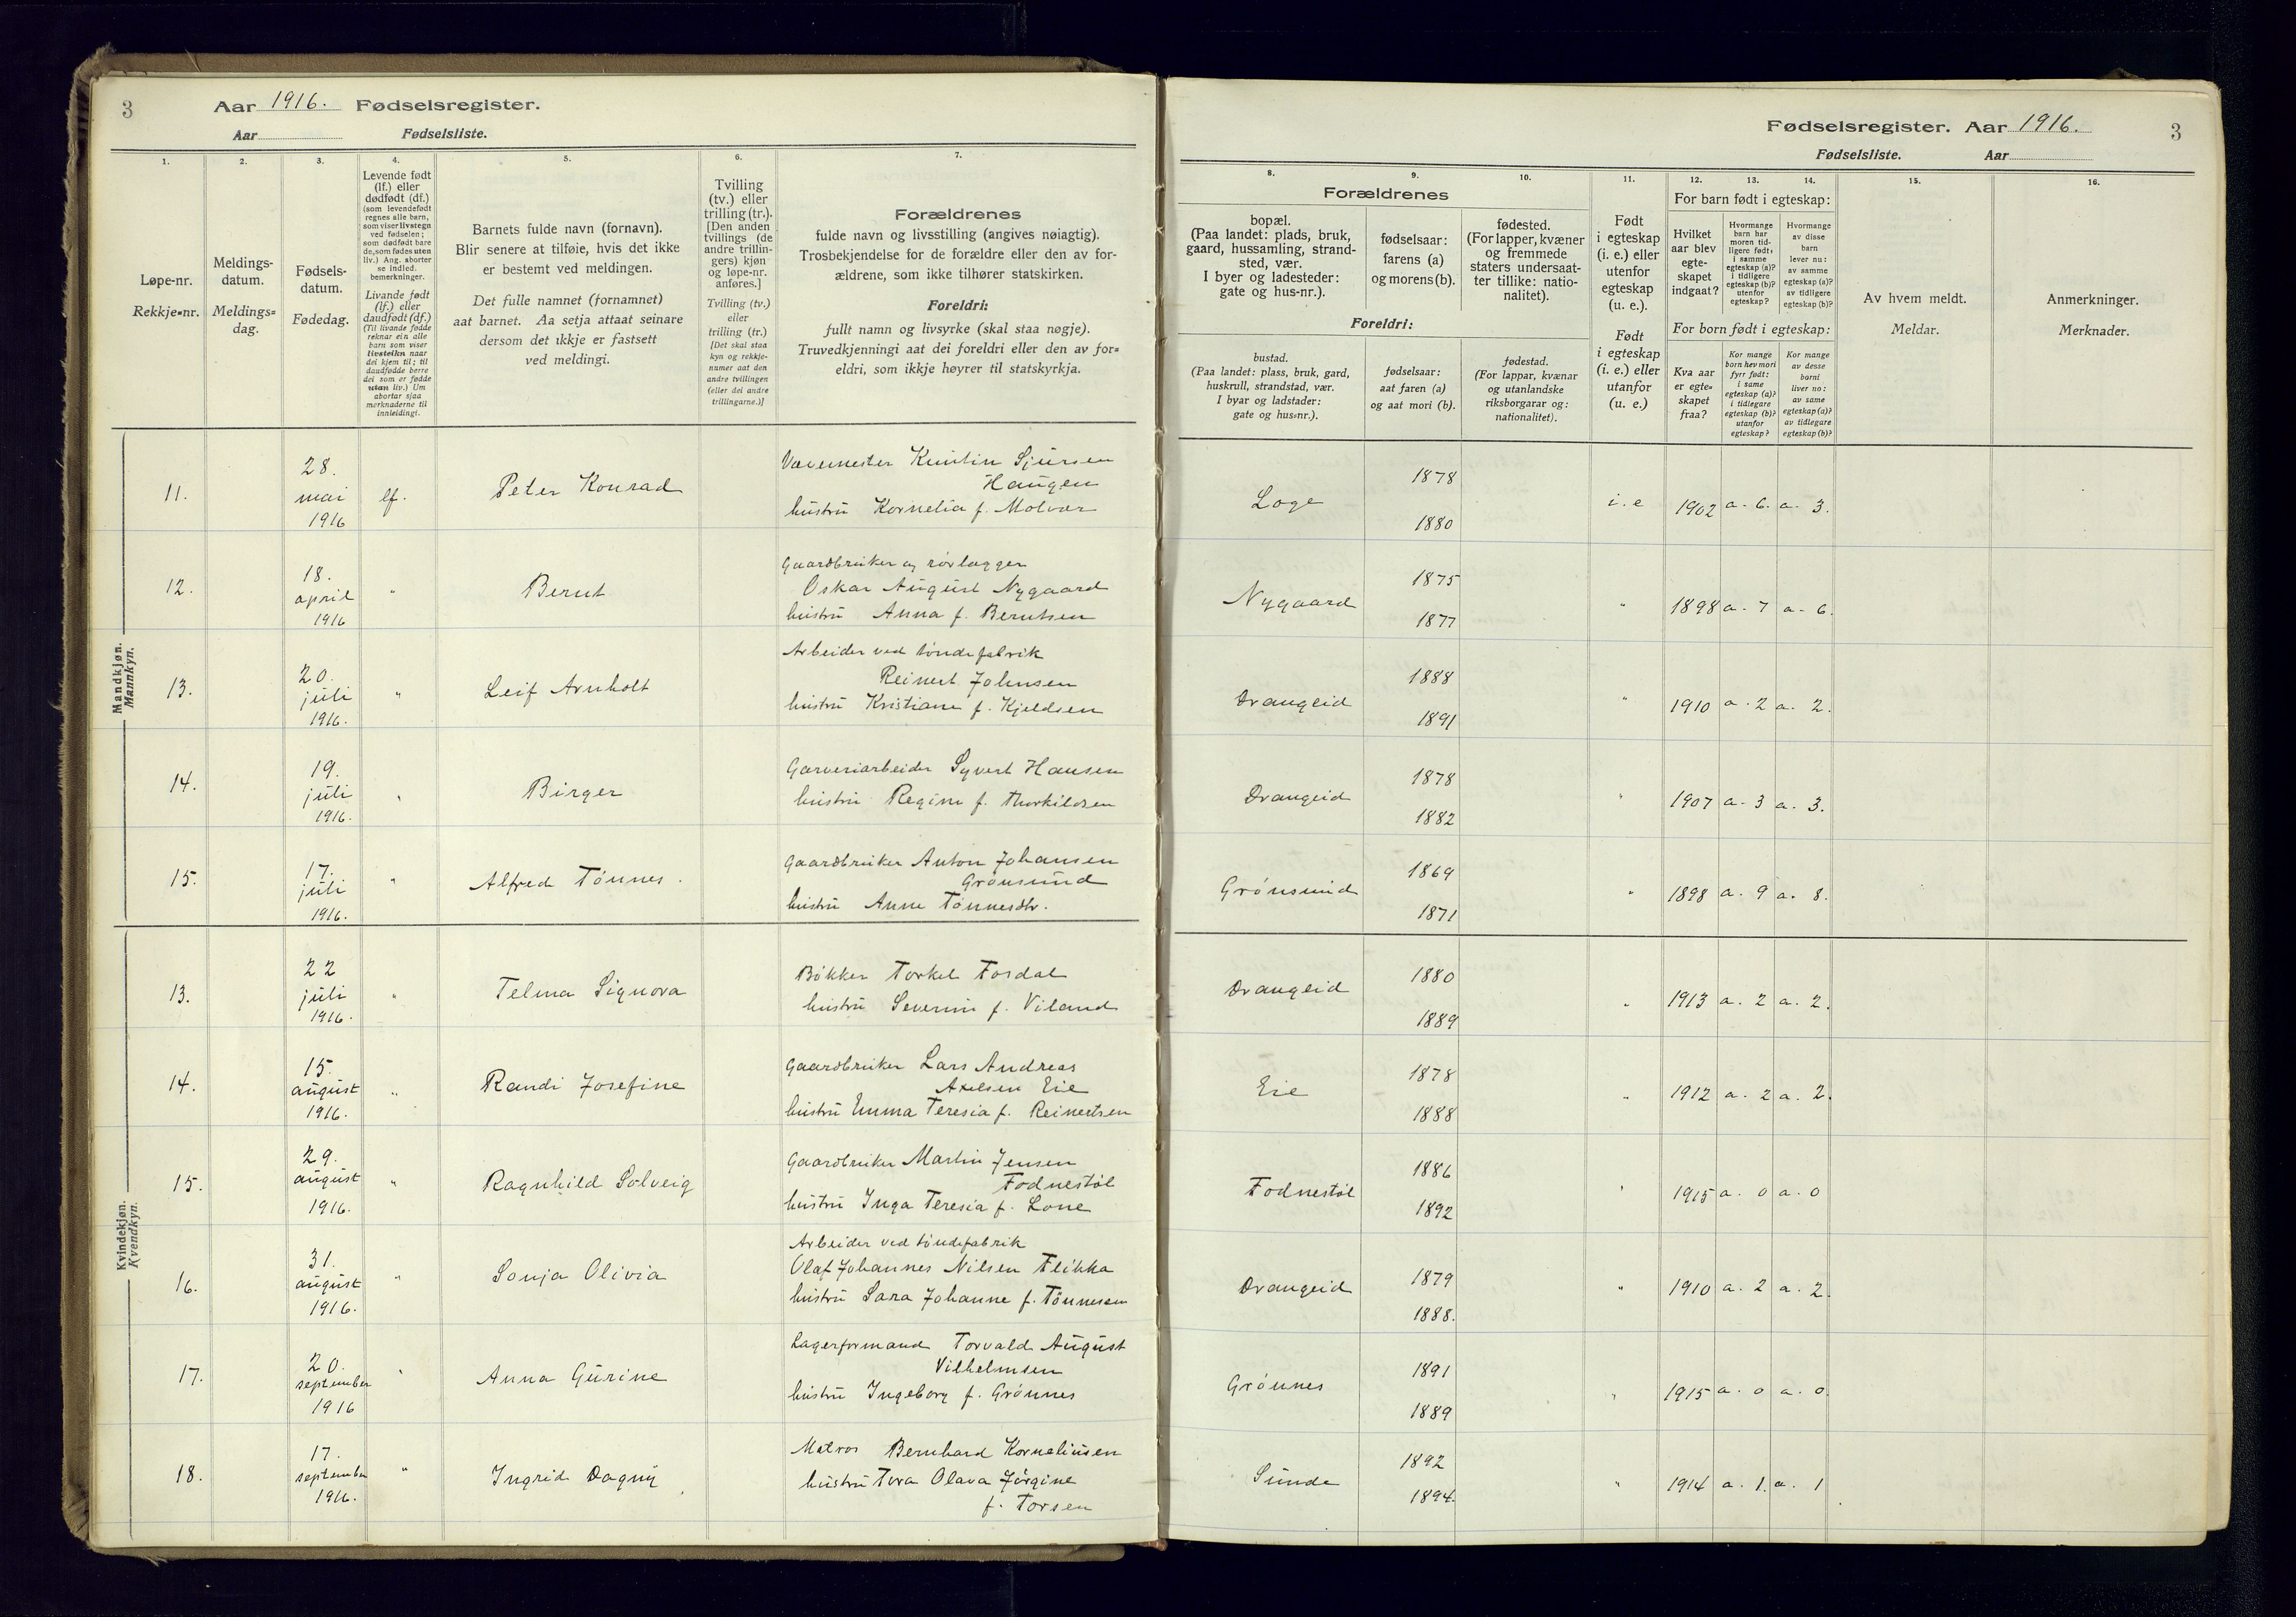 3
Aar 1916. Fødselsregister.
Aar Fødselsliste.
1.
2.
3.
4.
5.
6.
7.
Løpe-nr.
Rekkje-nr.
Meldings-
datum.
Meldings-
dag.
Fødsels-
datum.
Fødedag.
Levende født
(lf.) eller
dødfødt (df.)
(som levendefødt
regnes alle barn,
som viser livstegn
ved fødselen;
som dødfødt bare
de, som fødes uten
liv.) Ang. aborter
se indled.
bemerkninger.
Livande født
(lf.) eller
daudfødt (df.)
(Til livande fødde
reknar ein alle
barn som viser
livsteikn naar
dei kjem til; til
daudfødde berre
dei som er fødde
utan liv.) Um
abortar sjaa
merknaderne til
innleidingi.
Barnets fulde navn (fornavn).
Blir senere at tilføie, hvis det ikke
er bestemt ved meldingen.
Det fulle namnet (fornamnet)
aat barnet. Aa setja attaat seinare
dersom det ikkje er fastsett
ved meldingi.
Tvilling
(tv.) eller
trilling (tr.).
[Den anden
tvillings (de
andre trillin-
gers) kjøn
og løpe-nr.
anføres.]
Tvilling (tv.)
eller
trilling (tr.)
[Det skal staa
kyn og rekkje-
numer aat den
andre tvillingen
(eller dei andre
trillingarne.)]
Forældrenes
fulde navn og livsstilling (angives nøiagtig).
Trosbekjendelse for de forældre eller den av for-
ældrene, som ikke tilhører statskirken.
Foreldri:
fullt namn og livsyrke (skal staa nøgje).
Truvedkjenningi aat dei foreldri eller den av for-
eldri, som ikkje høyrer til statskyrkja.
Mandkjøn.
Mannkyn.
11.
28.
mai
1916
lf.
Peter Konrad
Sjursen
Haugen
hustru Kornelia f. Molvær
12.
18.
april
1916
"
Bernt
Gaardbruker og rørlægger
Oskar August Nygaard
hustru Anna f. Berntsen
13.
20.
juli
1916.
"
Leif Arnholt
Arbeider ved tøndefabrik
Reinert Johnsen
hustru Kristiane f. Kjeldsen
14.
19.
juli
1916.
"
Birger
Garveriarbeider Syvert Hansen
hustru Regine f. Thorkildsen
15.
17.
juli
1916.
"
Alfred Tønnes.
Gaardbruker Anton Johansen
Grønsund
hustru Anne Tønnesdtr.
Kvindekjøn.
Kvendkyn.
13.
22
juli
1916.
"
Telma Signora
Bøkker Torkel Fosdal
hustru Severine f. Viland
14.
15.
august
1916.
"
Randi Josefine
Gaardbruker Lars Andreas
Axelsen Eie
hustru Emma Teresia f. Reinertsen
15.
29.
august
1916.
"
Ragnhild Solveig
Gaardbruker Martin Jensen
Fodnestøl
hustru Inga Teresia f. Lone
16.
31.
august
1916.
"
Sonja Olivia
Arbeider ved tøndefabrik
Olaf Johannes Nilsen Flikka
hustru Sara Johanne f. Tønnesen
17.
20.
september
1916
"
Anna Gurine
Lagerformand Torvald August
Vilhelmsen
hustru Ingeborg f. Grønnes
18.
17.
september
1916.
"
Ingrid Dagny
Matros Bernhard Korneliusen
hustru Tora Olava Jørgine
f. Torsen
Fødselsregister. Aar 1916.
3
Fødselsliste. Aar
8.
9.
10.
11.
12.
13.
14.
15.
16.
Forældrenes
bopæl.
(Paa landet: plads, bruk,
gaard, hussamling, strand-
sted, vær.
I byer og ladesteder:
gate og hus-nr.).
fødselsaar:
farens (a)
og morens (b).
fødested.
(For lapper, kvæner
og fremmede
staters undersaat-
ter tillike: natio-
nalitet).
Foreldri:
bustad.
(Paa landet: plass, bruk, gard,
huskrull, strandstad, vær.
I byar og ladstader:
gate og hus-nr.).
fødselsaar:
aat faren (a)
og aat mori (b).
fødestad.
(For lappar, kvænar
og utanlandske
riksborgarar og:
nationalitet).
Født
i egteskap
(i. e.) eller
utenfor
egteskap
(u. e.).
Født
i egteskap
(i. e.) eller
utanfor
(u. e.)
For barn født i egteskap:
Hvilket
aar blev
egte-
skapet
indgaat?
Hvormange
barn har
moren tid-
ligere født,
i samme
egteskap (a)?
i tidligere
egteskap (b)?
utenfor
egteskap?
Hvormange
av disse
barn
lever nu:
av samme
egteskap (a)?
av tidligere
egteskap (b)?
For born født i egteskap:
Kva aar
er egte-
skapet
fraa?
Kor mange
born hev mori
fyrr født:
i same
egteskap (a)?
i tidlegare
egteskap (b)?
utanfor
egteskap?
Kor mange
av desse
borni
liver no:
av same
egteskap (a)?
av tidlegare
egteskap (b)?
Av hvem meldt.
Meldar.
Anmerkninger.
Merknader.
Loge 1878 1880 i. e 1902 a. 6. a. 3.
Nygaard 1875 1877 " 1898 a. 7 a. 6.
Drangeid 1888 1891 " 1910 a. 2 a. 2.
Drangeid 1878 1882 " 1907 a. 3 a. 3.
Grønsund 1869 1871 " 1898 a. 9 a. 8.
Drangeid 1880 1889 " 1913 a. 2 a. 2.
Eie 1878 1888 " 1912 a. 2 a. 2.
Fodnestøl 1886 1892 " 1915 a. 0 a. 0
Drangeid 1879 1888. " 1910 a. 2 a. 2.
Grønnes 1891 1889 " 1915 a. 0 a. 0.
Sunde 1892 1894. " 1914 a. 1. a. 1